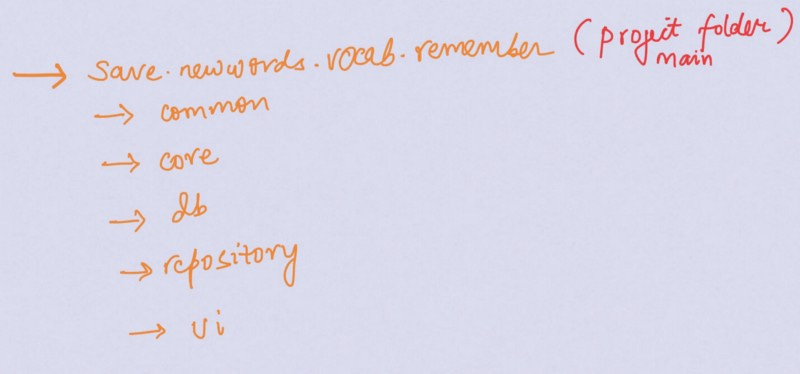 → save.newwords.vocab.remember (project folder)
main
→ common
→ core
→ db
→ repository
→ ui